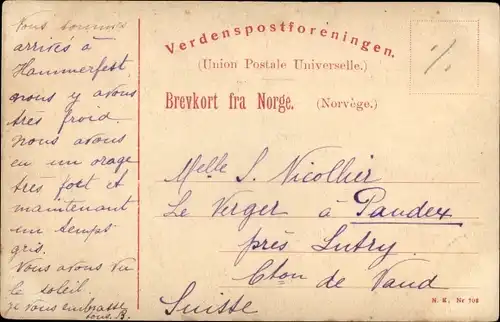 Nous sommes
arrivés à
Hammerfest,
nous y avons
très froid.
nous avons
eu un orage
très fort et
maintenant
un temps
gris.
Nous avons vu
le soleil.
je vous embrasse
tous. B.
Verdenspostforeningen.
(Union Postale Universelle.)
Brevkort fra Norge. (Norvège.)
Melle S. Nicollier
Le Verger à Paudex
près Lutry
Cton de Vaud
Suisse
N. K., Nr 708